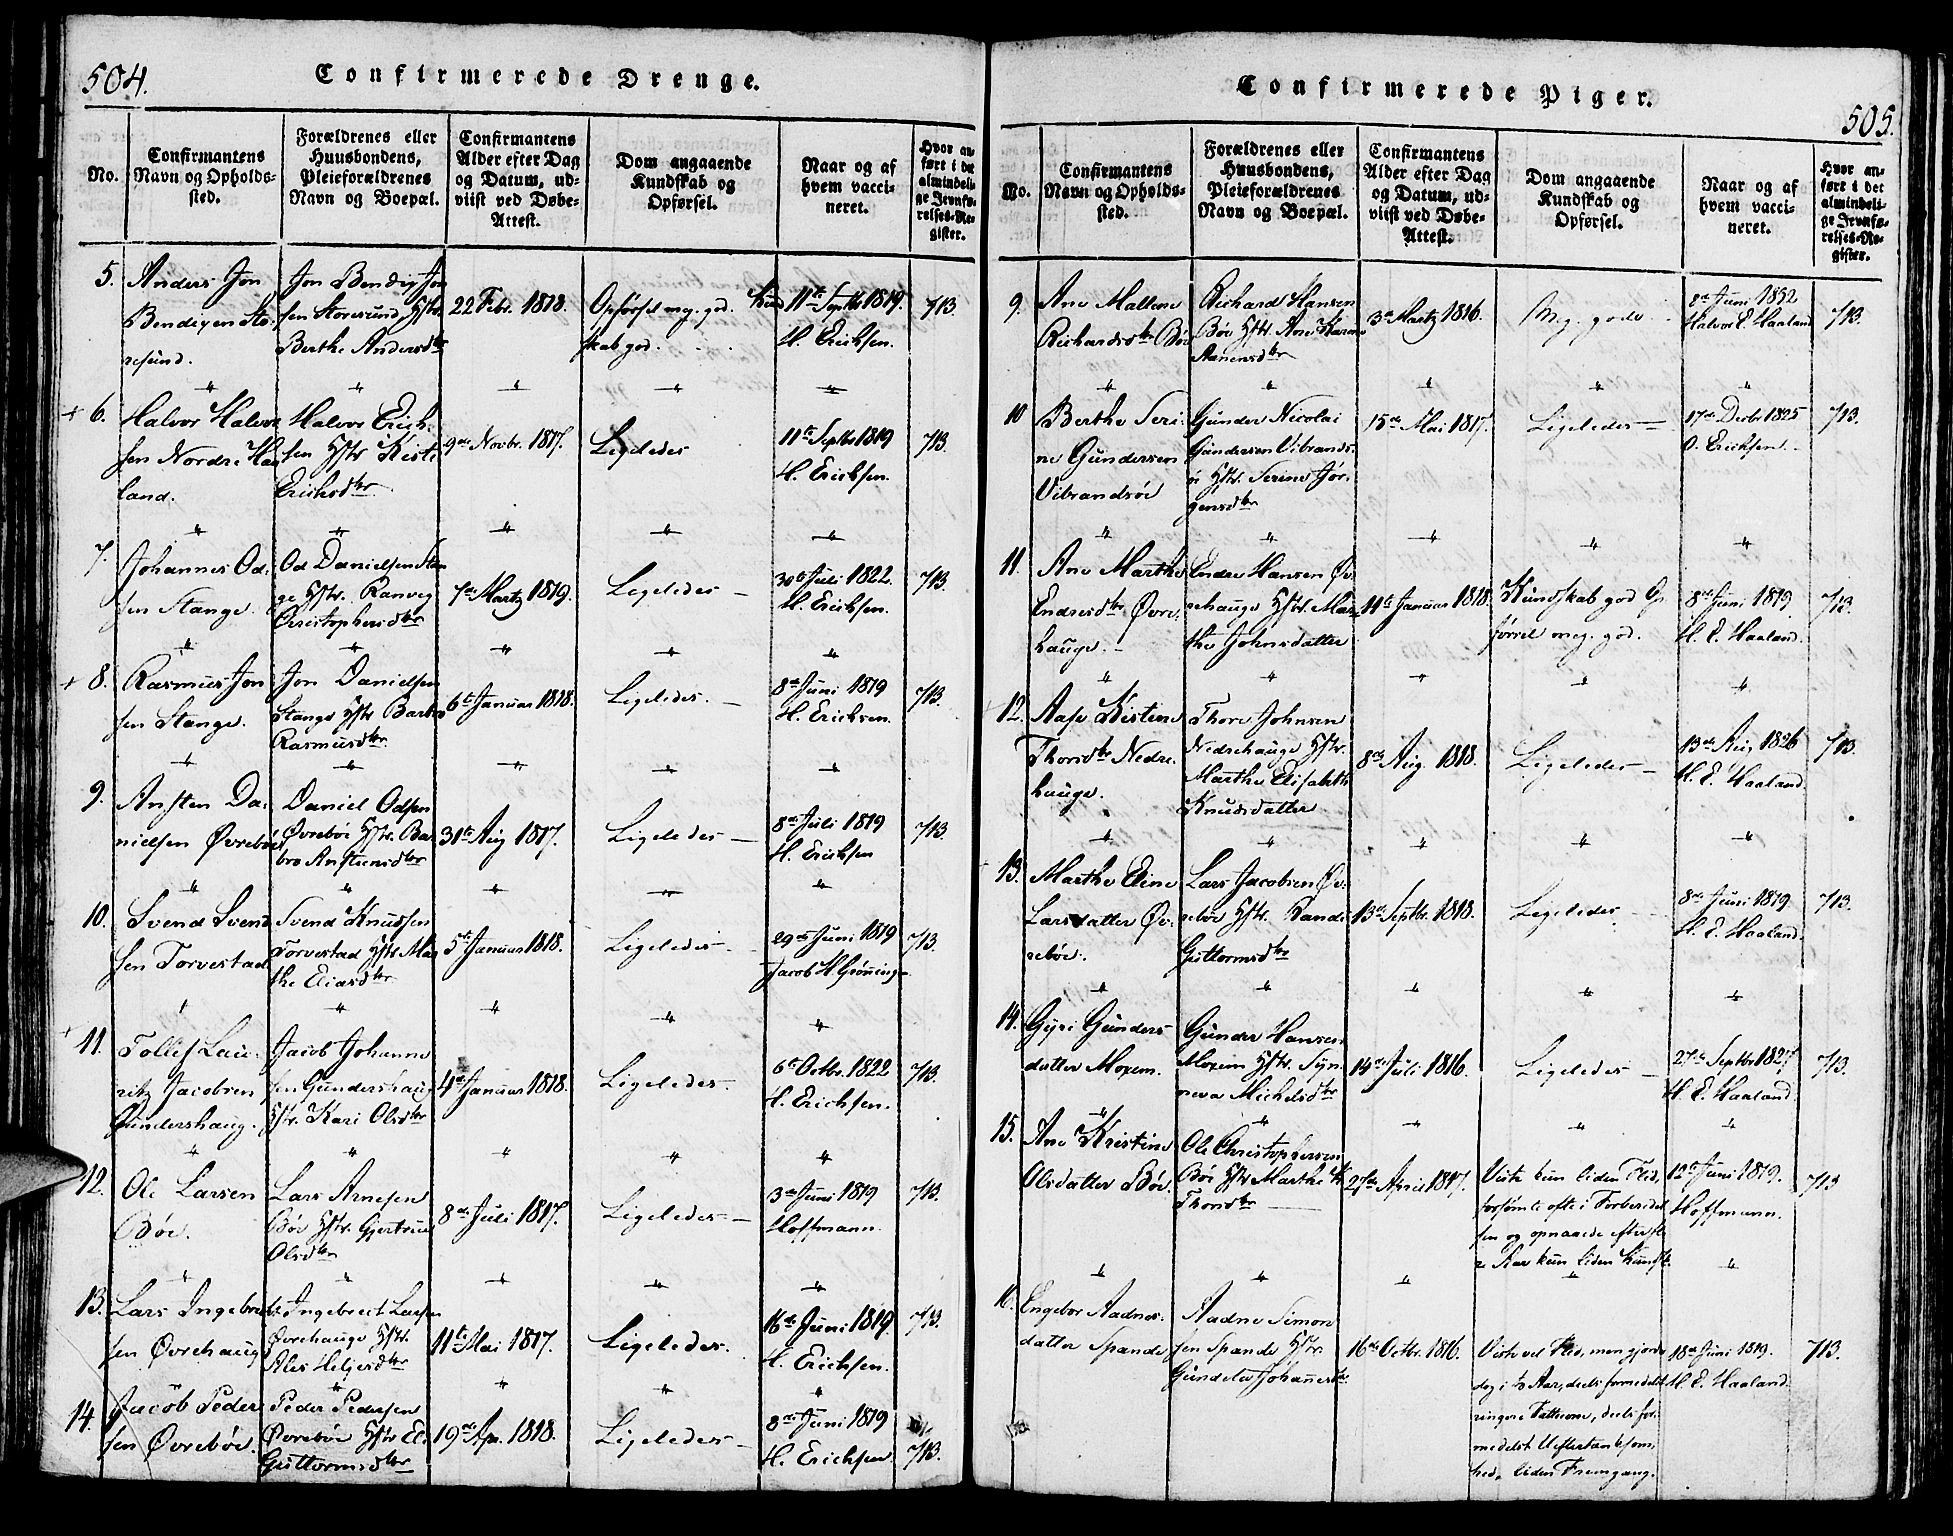 504.
Confirmerede Drenge.
No.
Confirmantens
Navn og Opholds-
sted.
Forældrenes eller
Huusbondens,
Pleieforældrenes
Navn og Boepæl.
Confirmantens
Alder efter Dag
og Datum, ud-
viist ved Døbe-
Attest.
Dom angaaende
Kundskab og
Opførsel.
Naar og af
hvem vacci-
neret.
Hvor an-
ført i det
almindeli-
ge Jevnfø-
relses-Re-
gister.
5.
Anders Jon
Bendixen Sto-
resund.
Jon Bendix Jon
sen Storesund Hstr.
Berthe Andersdtr
22 Febr. 1818.
Opførsel meg. god. Kund
skab god.
11te Septbr 1819.
H. Erichsen.
713.
6.
Halvor Halvor
sen Nordre Haa
land.
Halvor Erich-
sen Hstr Kisti
Erichsdtr
9de Novbr. 1817.
Ligeledes
11te Septbr 1819
H. Erichsen.
713
7.
Johannes Od-
sen Stange.
Od Danielsen Stan
ge Hstr. Ranveg
Christophersdtr
7de Martz 1819.
Ligeledes
30te Juli 1822.
H. Erichsen.
713.
8.
Rasmus Jon
sen Stange.
Jon Danielsen
Stange Hstr
Rasmusdtr
6te Januar 1818.
Ligeledes.
8de Juni 1819
H. Erichsen.
713.
9.
Ansten Da-
nielsen Øvrebøe
Daniel Odsen
Øvrebøe Hstr. Bar
bro Anstensdtr
31te Aug 1817.
Ligeledes
8de Juli 1819
H. Erichsen
713.
10.
Svend Svend
sen Torvestad
Svend Knudsen
Torvestad Hstr Mar
the Eliasdtr
5te Januar 1818.
Ligeledes
29de Juni 1819
Jacob H Grønning
713.
11.
Tollef Lau-
ritz Jacobsen
Gundershaug.
Jacob Johanne
sen Gundershaug
Hstr. Kari Olsdtr
4de Januar 1818.
Ligeledes
6te Octbr. 1822
H. Erichsen.
713.
12.
Ole Larsen
Bøe.
Lars Arnesen
Bøe Hstr. Gjertrud
Olsdtr
8de Juli 1817.
Ligeledes
3de Juni 1819
Hoffmann.
713.
13.
Lars Ingebret
sen Øvrehaug
Ingebrect Larsen
Øvrehauge Hstr
11te Mai 1817.
Ligeledes.
16de Juni 1819.
H. Erichsen.
713.
14.
Jacob Peder
sen Øvrebøe.
Peder Pedersen
Øvrebøe Hstr Eli
Guttormsdtr
19de Apr. 1818.
Ligeledes
8de Juni 1819
H. Erichsen
713.
Confirmerede Piger.
505.
No.
Confirmantens
Navn og Opholds-
sted.
Forældrenes eller
Huusbondens,
Pleieforældrenes
Navn og Boepæl.
Confirmantens
Alder efter Dag
og Datum, ud-
viist ved Døbe-
Attest.
Dom angaaende
Kundskab og
Opførsel.
Naar og af
hvem vacci-
neret.
Hvor an-
ført i det
almindeli-
ge Jevnfø-
relses-Re-
gister.
9.
Ane Malene
Richardsdtr Bøe
Richard Hansen
Bøe Hstr. Ane Karine
3de Martz 1816.
Meg. gode
8de Juni 1832
Halvor E. Haaland
713.
10
Berthe Seri-
ne Gundersen
Vibrandsøe
Gunder Nicolai
Gundersen Vibrands-
ø Hstr. Serine Jør-
gensdtr
15de Mai 1817.
Ligeledes
17de Decbr 1825
O. Erichsen.
713.
11.
Ane Marthe
Endresdtr Øvre-
hauge.
Endre Hansen Øv-
rehauge Hstr. Mar-
the Johnsdatter
11te Januar 1818.
Kundskab god Op
førsel meg. god.
8de Juni 1819
H. E. Haaland.
713.
12.
Aase Kistine
Thoresdtr Nedre-
hauge.
Thore Johnsen
Nedrehauge Hstr.
Marthe Elisabeth
Knudsdatter
8de Aug. 1818.
Ligeledes
13de Aug 1826
H. E. Haaland.
713.
13.
Marthe Eline
Larsdatter Øv-
rebøe.
Lars Jacobsen Øv-
rebøe Hstr. Rande
Guttormsdtr
13de Septbr. 1818.
Ligeledes
8de Juni 1819
H. E. Haaland.
713.
14.
Gyri Gunders-
datter Moxem.
Gunder Hansen
Moxem Hstr. Syn-
neva Michelsdtr
14de Juli 1816.
Ligeledes
27de Septbr 1827
H. E. Haaland.
713.
15.
Ane Kristine
Olsdatter Bøe.
Ole Christophersen
Bøe Hstr Marthe K
Thorsdtr
27de April 1817.
Viste kun liden Flid,
forsømte ofte i Forberedel
sen og opnaaede efter fle
re Aar kun liden Kundsk.
12te Juni 1819.
Hoffmann.
713
16.
Engebor Aadnes-
datter Spande
Aadne Simon
sen Spande Hstr.
Gundela Johannesdtr
16de Octbr. 1816.
Viste vel Flid, men gjorde
dog i to Aar, deels formedelst
ringere Fatteevne, deels for-
medelst Ueftertænksom-
hed, liden Fremgang.
18de Juni 1819.
H. E. Haaland.
713.